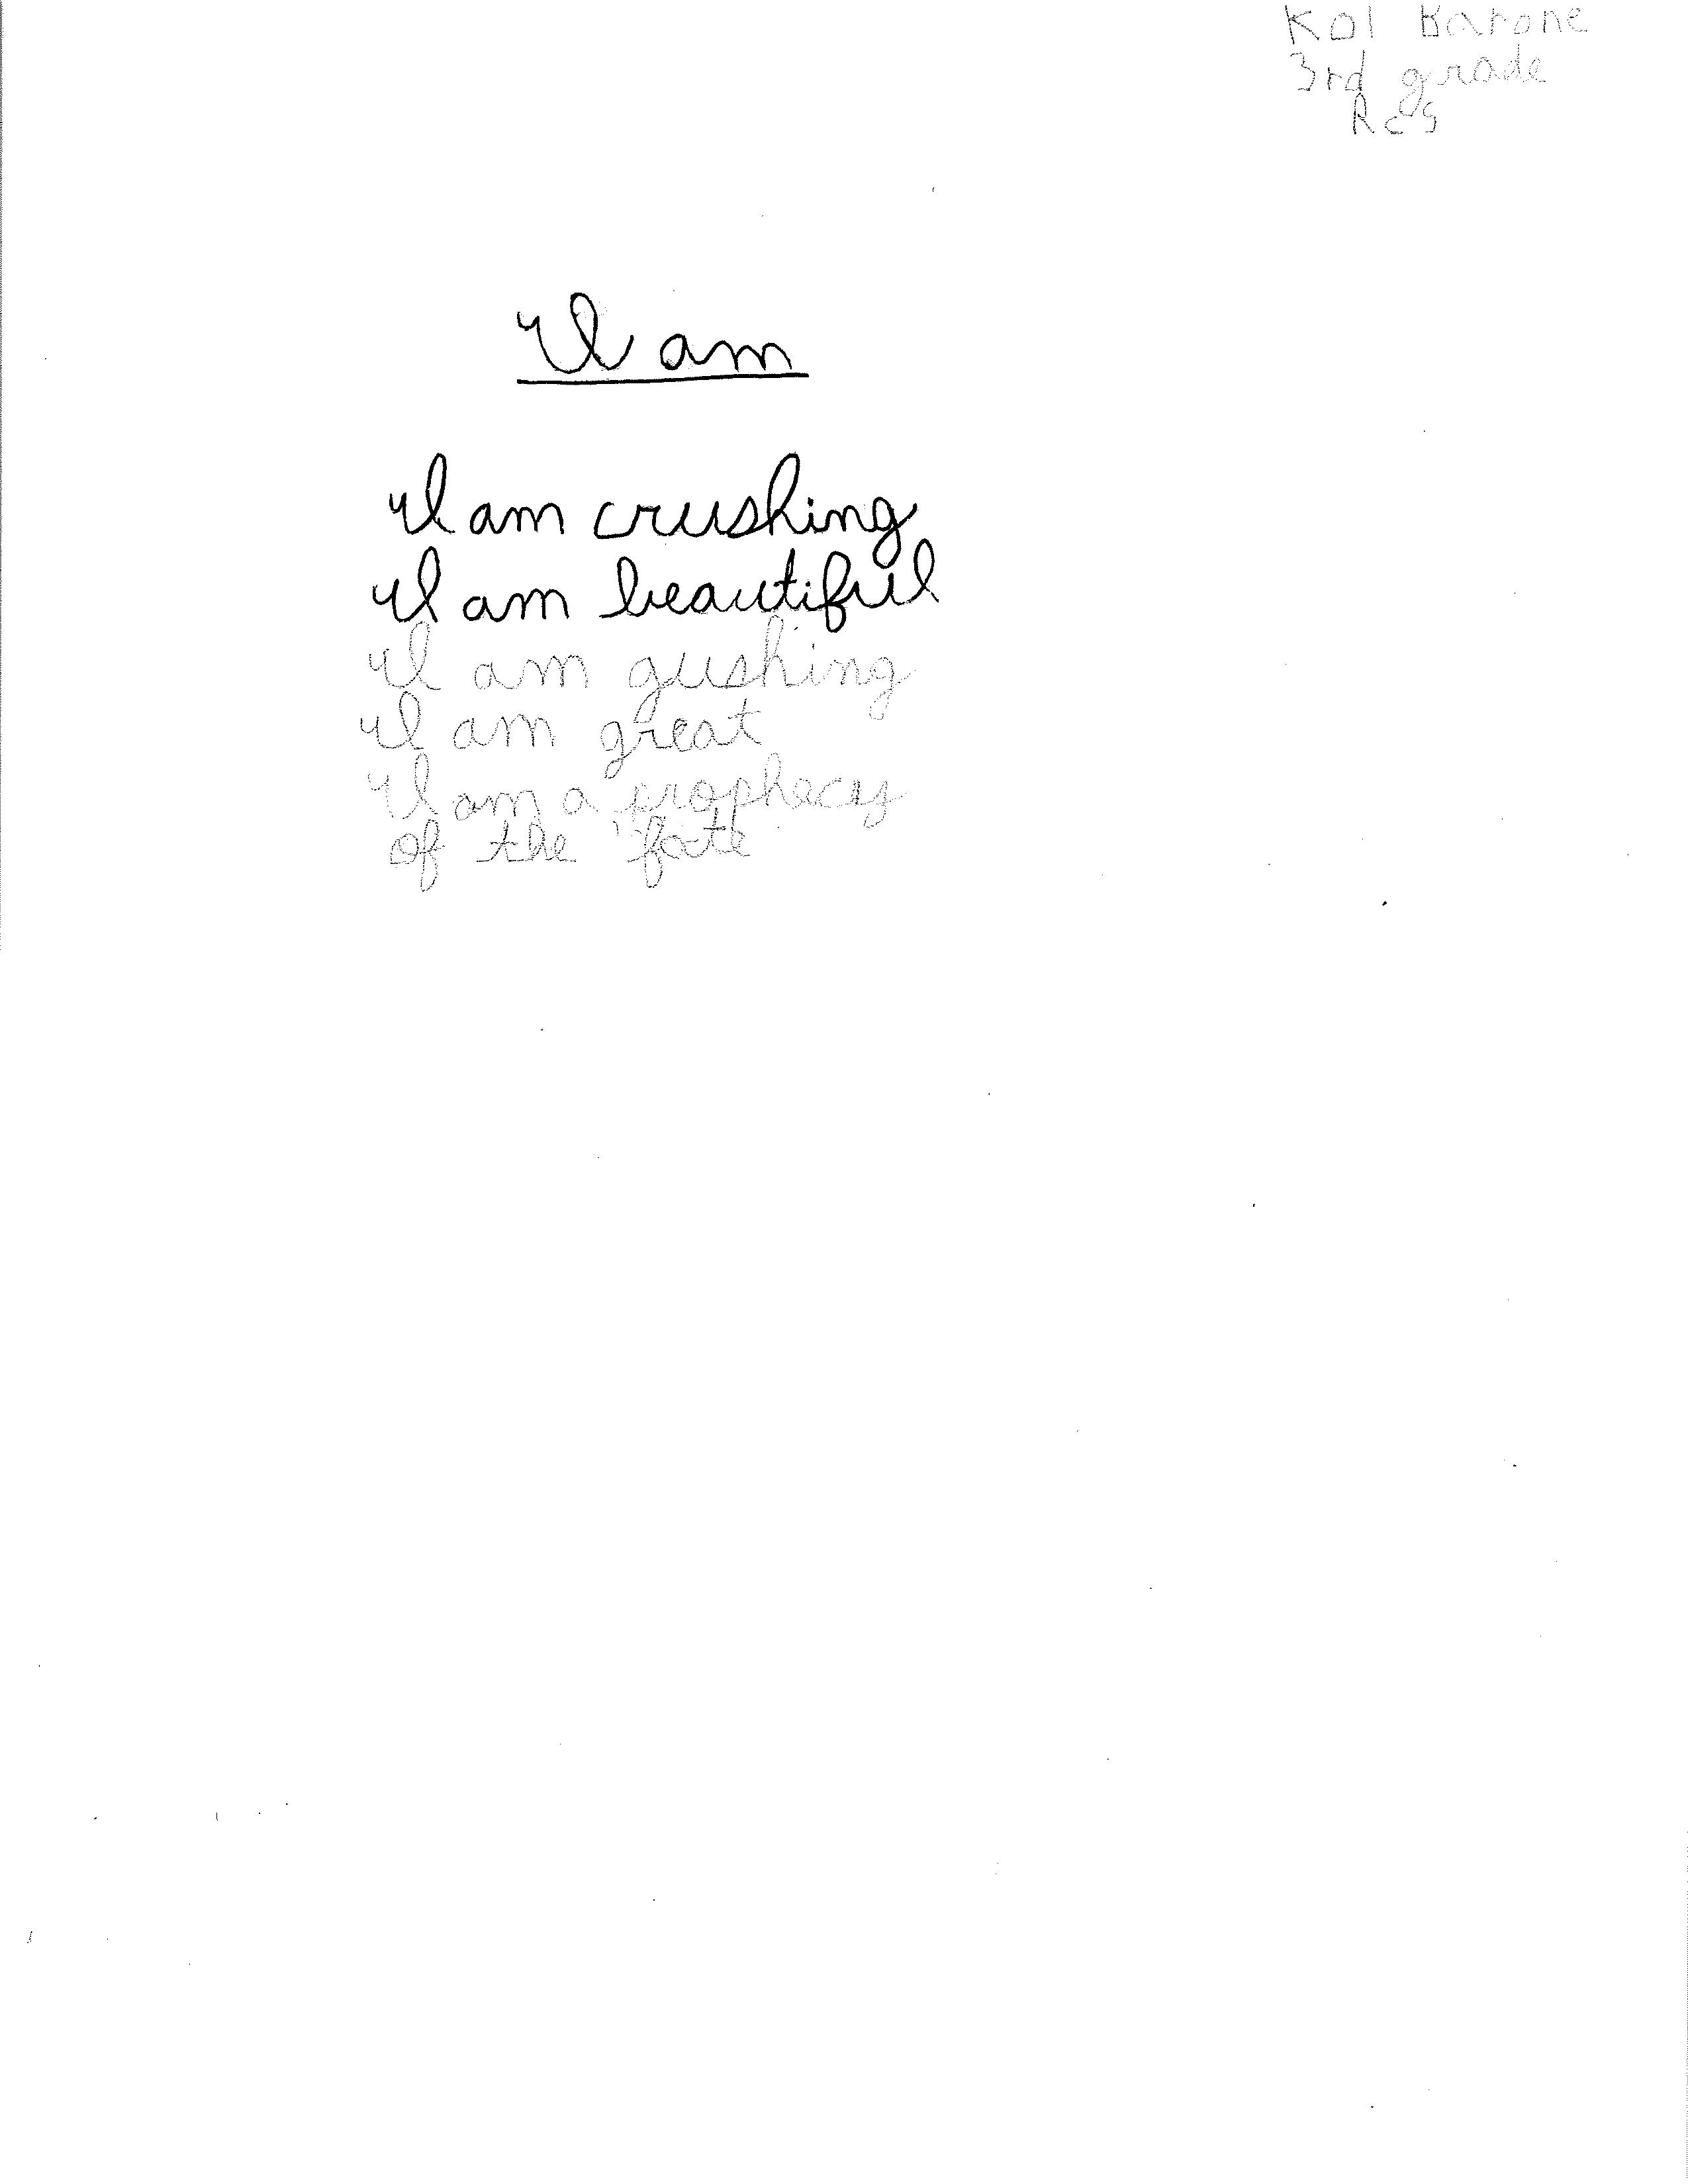 Kol Barone
3rd grade
RCS
I am
I am crushing
I am beautiful
I am gushing
I am great
I am a prophecy
of the fate